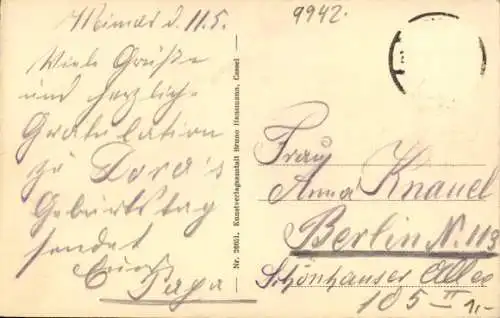 d. 11.5.
Viele Grüße
und herzlich-
Gratulation
zu Dora's
Geburtstag
sendet
Euch
Papa
Nr. 20601. Kunstverlagsanstalt Bruno Hansmann, Cassel
9942.
Frau
Anna Knauel
Berlin N. 113
Schönhauser Allee
105 II
1,-